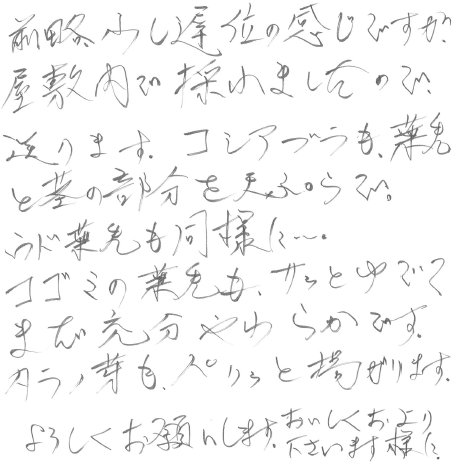 前略、少し遅位の感じですが、
屋敷内で採れましたので、
送ります。コシアブラも、葉先
と茎の部分を天ぷらで。
ウド葉先も同様に…。
コゴミの葉先も、サッとゆでて
まだ充分やわらかです。
タラノ芽も、ペリッと揚がります。
よろしくお願いします。おいしくお上り
下さいます様に。